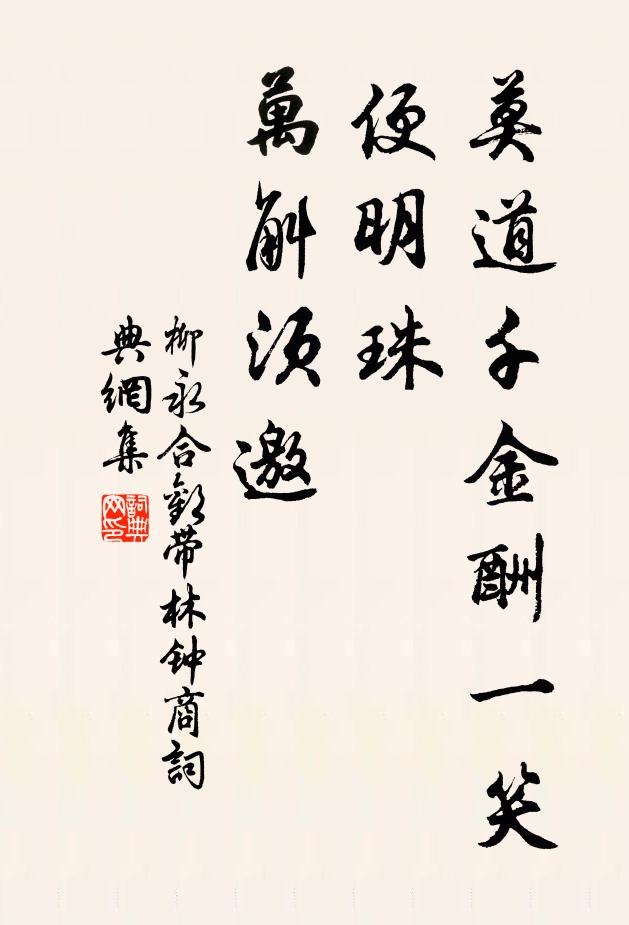 莫道千金酬一笑
便明珠
萬斛須邀
柳永合歡带林钟商詞
典網集
詞典网印